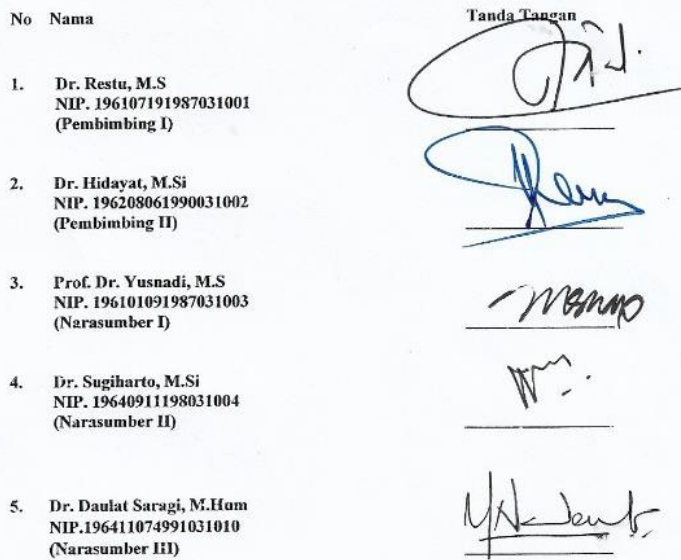 No Nama Tanda Tangan
1. Dr. Restu, M.S
NIP. 196107191987031001
(Pembimbing I)
2. Dr. Hidayat, M.Si
NIP. 196208061990031002
(Pembimbing II)
3. Prof. Dr. Yusnadi, M.S
NIP. 196101091987031003
(Narasumber I)
4. Dr. Sugiharto, M.Si
NIP. 19640911198031004
(Narasumber II)
5. Dr. Daulat Saragi, M.Hum
NIP.196411074991031010
(Narasumber III)